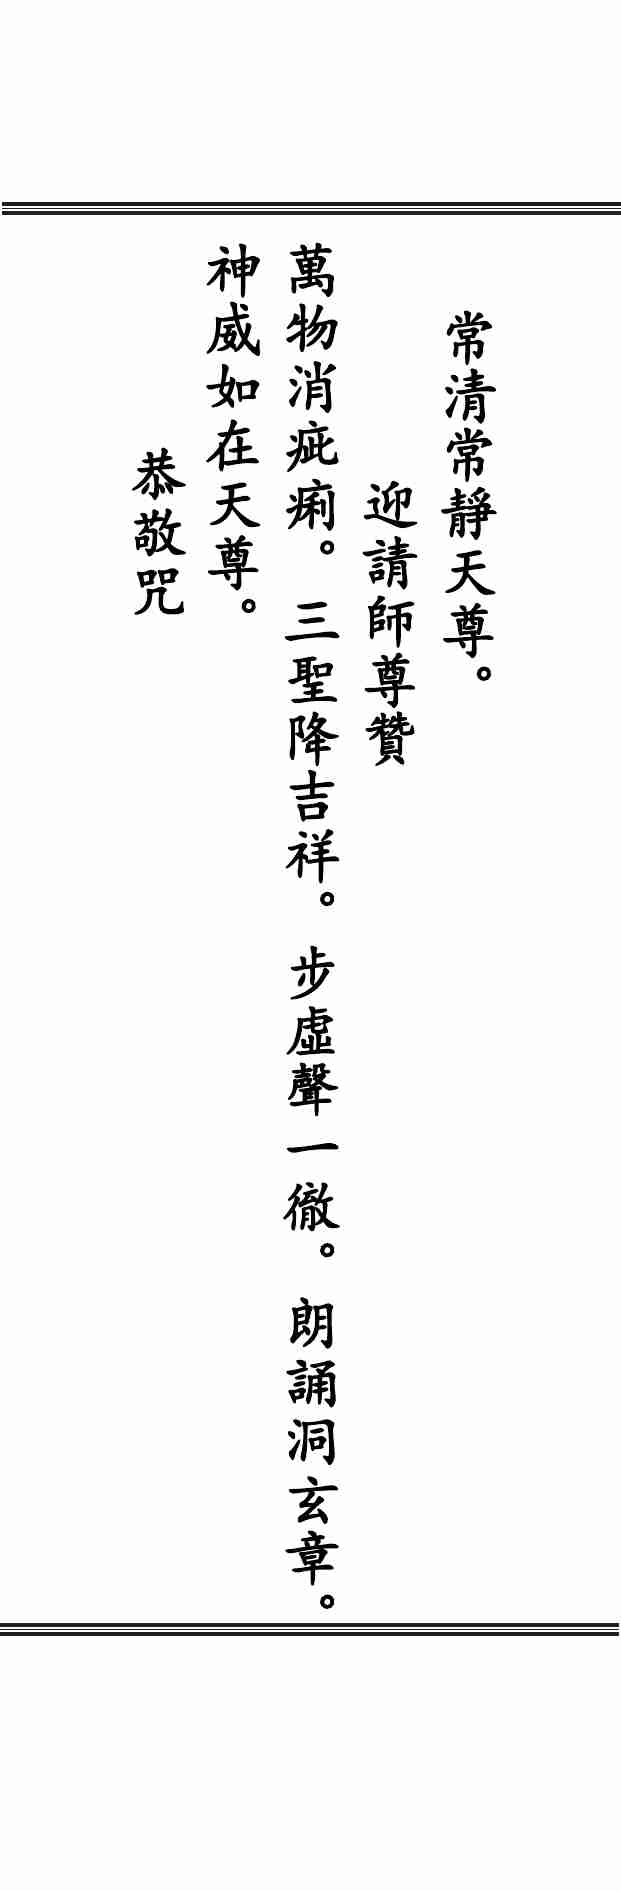 常清常靜天尊。
迎請師尊贊
萬物消疵痢。三聖降吉祥。步虛聲一徹。朗誦洞玄章。
神威如在天尊。
恭敬咒